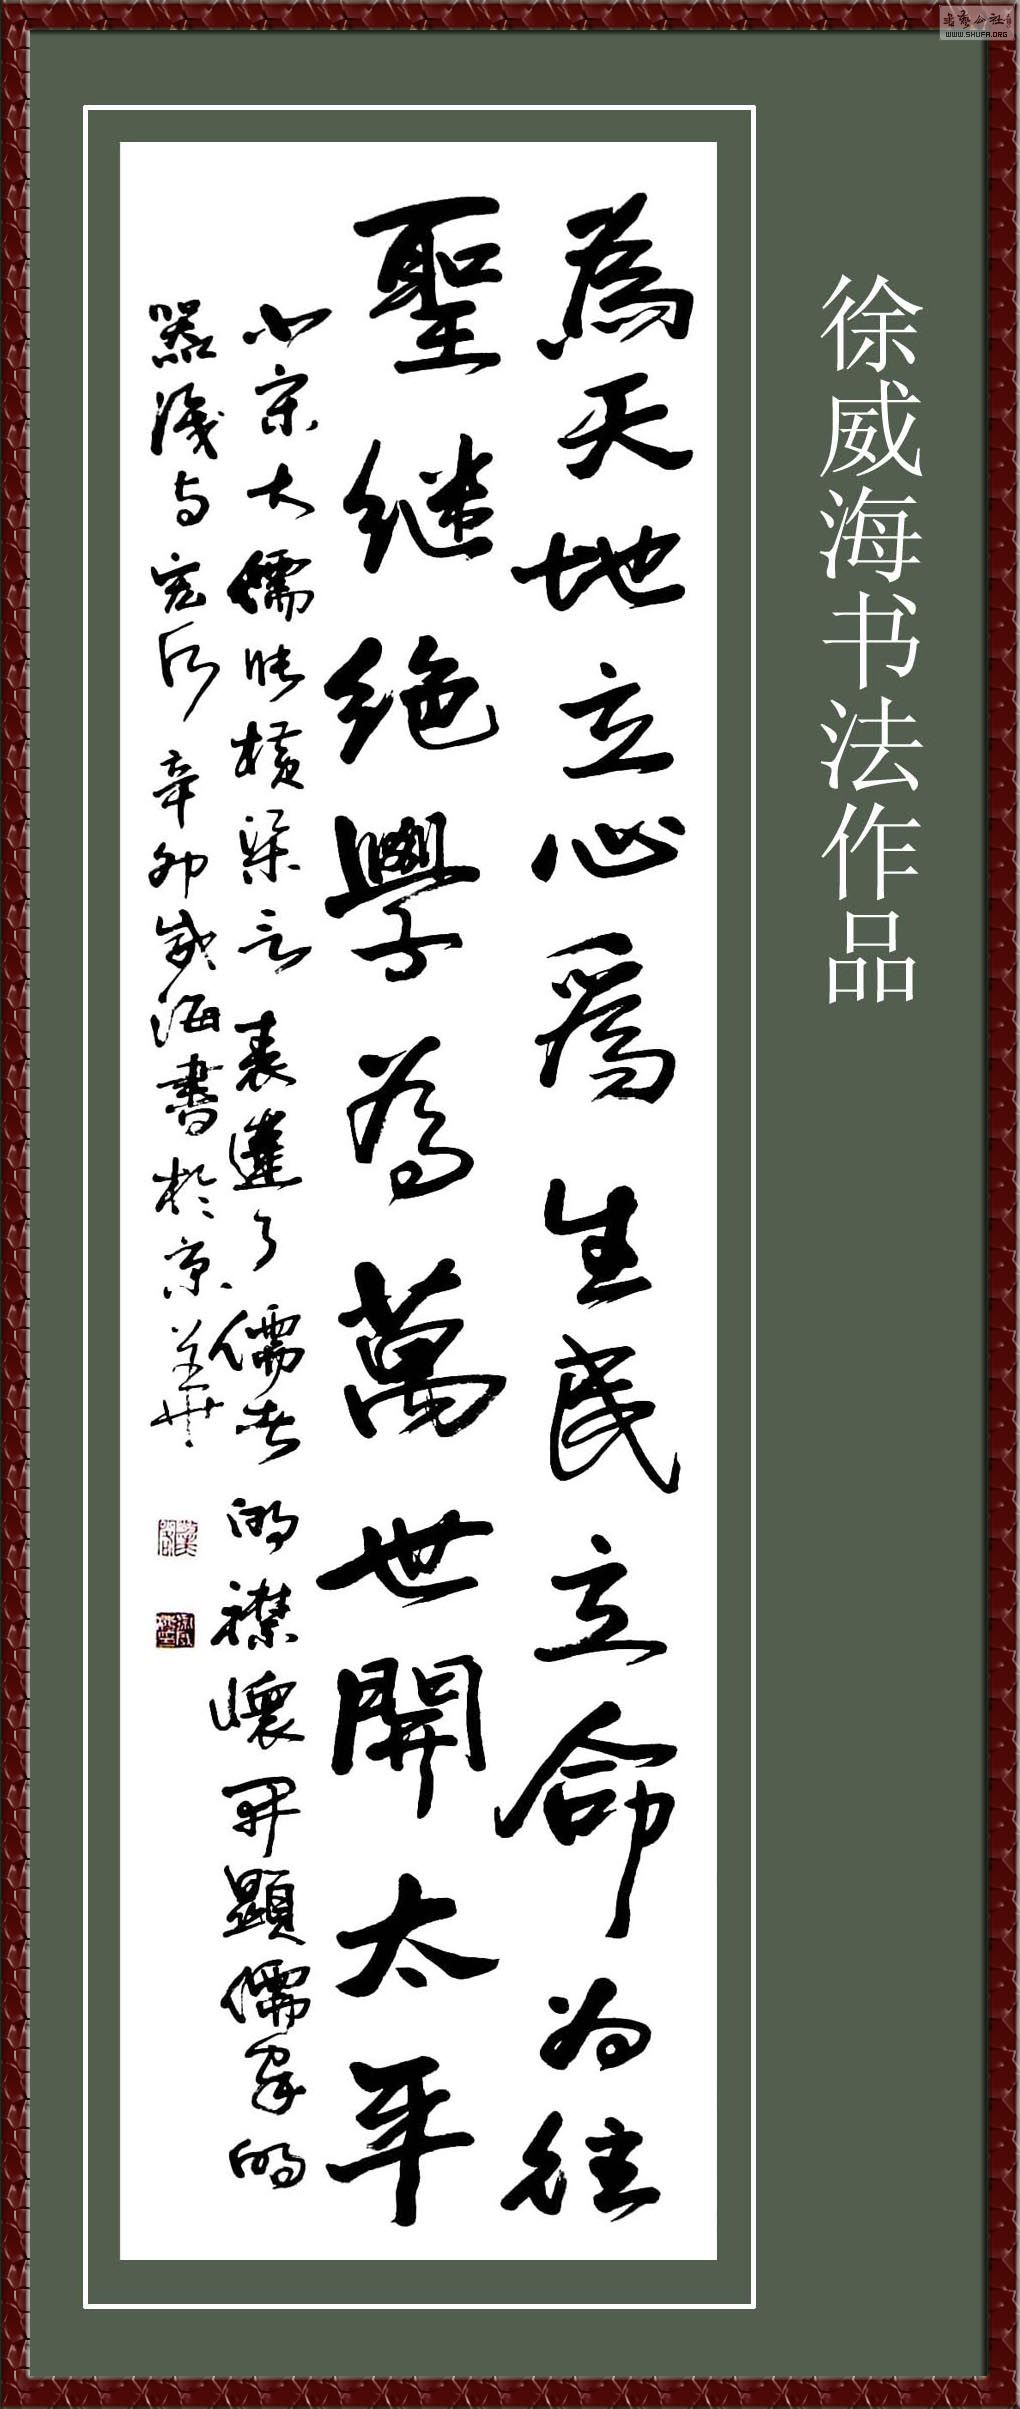 書藝公社
WWW.SHUFA.ORG
徐威海书法作品
為天地立心爲生民立命为往
聖继绝學為萬世開太平
北宋大儒张横渠言表達了儒者的襟懷开顯儒家的
器識与宏願辛卯威海書於京華